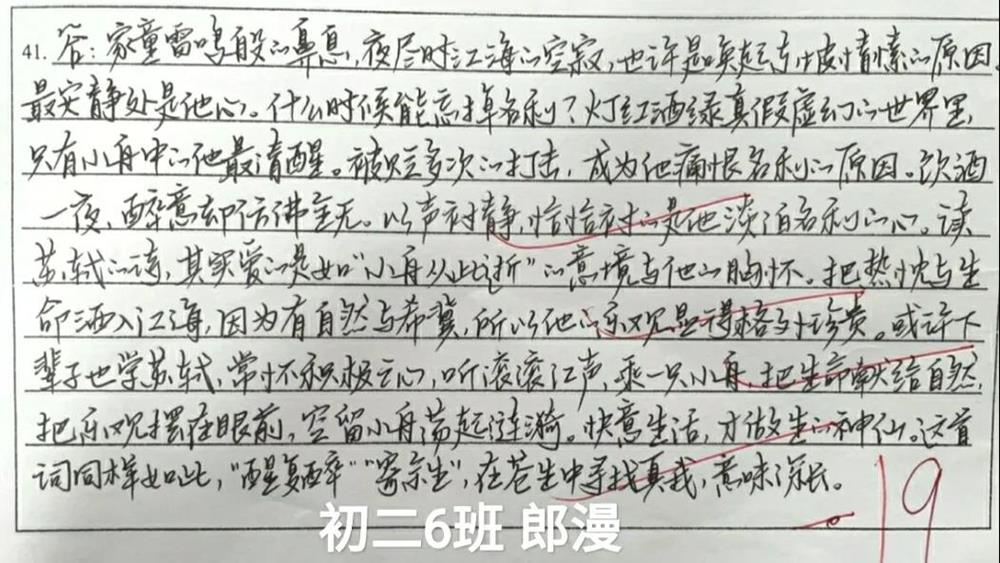 41. 答：家童雷鸣般的鼻息，夜尽时江海的空寂，也许是唤起东坡情愫的原因，
最安静处是他心。什么时候能忘掉名利？灯红酒绿真假虚幻的世界里，
只有小舟中的他最清醒。被贬多次的打击，成为他痛恨名利的原因。饮酒
一夜，醉意却仿佛全无。以声衬静，恰恰衬的是他淡泊名利的心。读
苏轼的词，其实爱的是如“小舟从此逝”的意境与他的胸怀。把热忱与生
命洒入江海，因为有自然与希冀，所以他的乐观显得格外珍贵。或许下
辈子也学苏轼，常怀积极之心，听滚滚江声，乘一只小舟，把生命献给自然，
把乐观摆在眼前，空留小舟荡起涟漪。快意生活，才做生的神仙。这首
词同样如此，“醒复醉”“寄余生”，在苍生中寻找真我，意味深长。
19
初二6班 郎漫